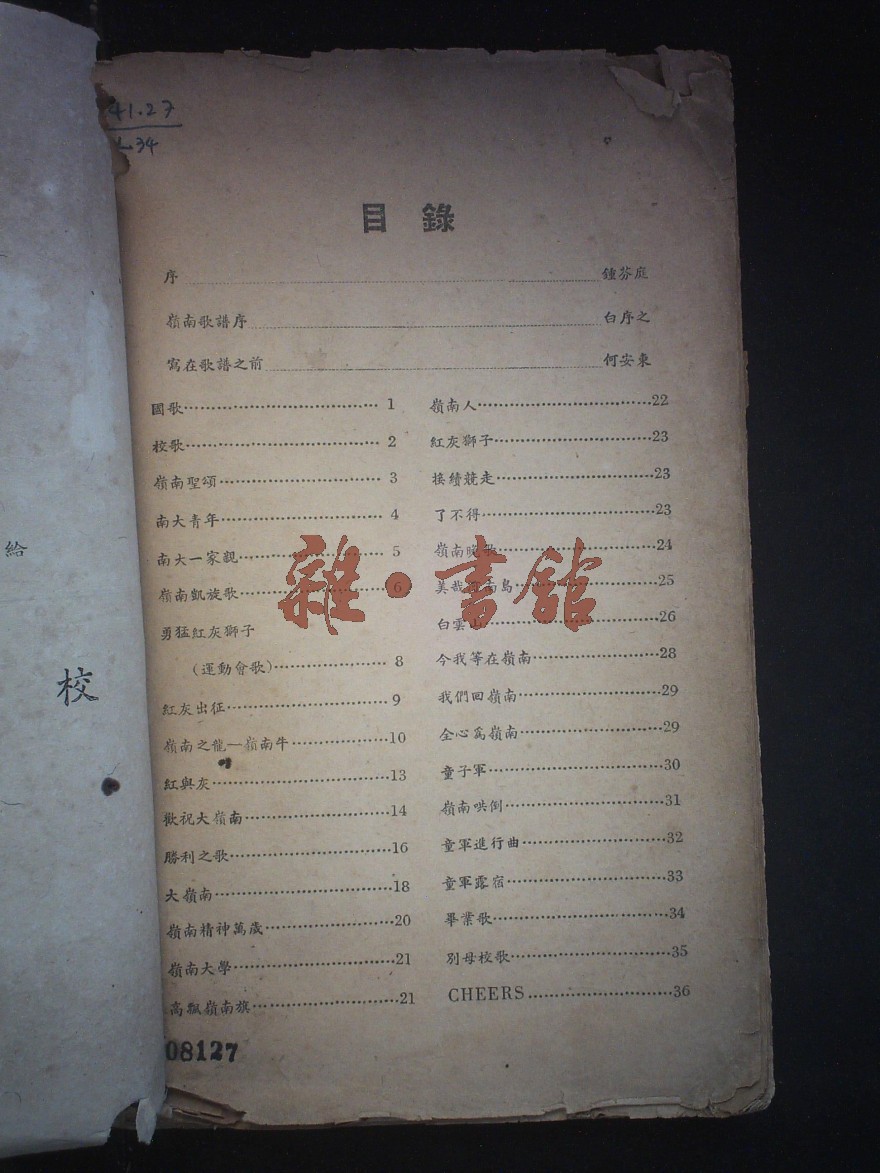 41.27
34
目錄
序 鍾芬庭
嶺南歌譜序 白序之
寫在歌譜之前 何安東
國歌 1
校歌 2
嶺南聖頌 3
南大青年 4
南大一家親 5
嶺南凱旋歌 6
勇猛紅灰獅子
(運動會歌) 8
紅灰出征 9
嶺南之龍—嶺南牛 10
紅與灰 13
歡祝大嶺南 14
勝利之歌 16
大嶺南 18
嶺南精神萬歲 20
嶺南大學 21
高飄嶺南旗 21
嶺南人 22
紅灰獅子 23
接續競走 23
了不得 23
嶺南晚歌 24
美哉 南島 25
白雲山 26
今我等在嶺南 28
我們回嶺南 29
全心爲嶺南 29
童子軍 30
嶺南哄倒 31
童軍進行曲 32
童軍露宿 33
畢業歌 34
別母校歌 35
CHEERS 36
08127
給
校
雜·書館